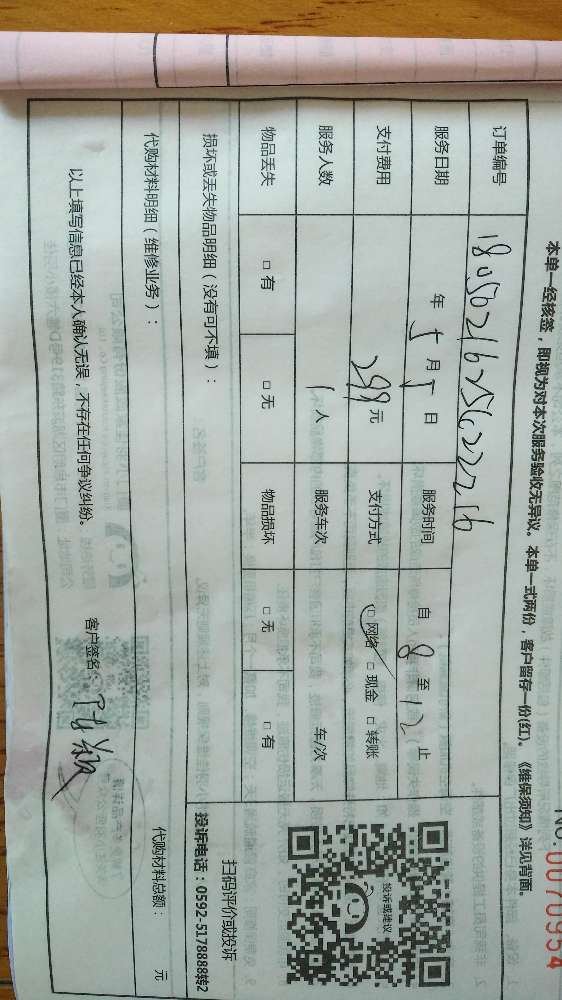 No.0070954
本单一经核签，即视为对本次服务验收无异议。本单一式两份，客户留存一份(红)。《维保须知》详见背面。
订单编号 180502162562222216
服务日期 年 5 月 5 日 服务时间 自 8 至 12 止
支付费用 299 元 支付方式 □ 网络 □ 现金 □ 转账
服务人数 1 人 服务车次 车/次
物品丢失 □ 有 □ 无 物品损坏 □ 无 □ 有
投诉或建议
扫码评价或投诉
投诉电话：0592-5178888转2
损坏或丢失物品明细（没有可不填）：
代购材料明细（维修业务）： 代购材料总额： 元
以上填写信息已经本人确认无误，不存在任何争议纠纷。
客户签名：